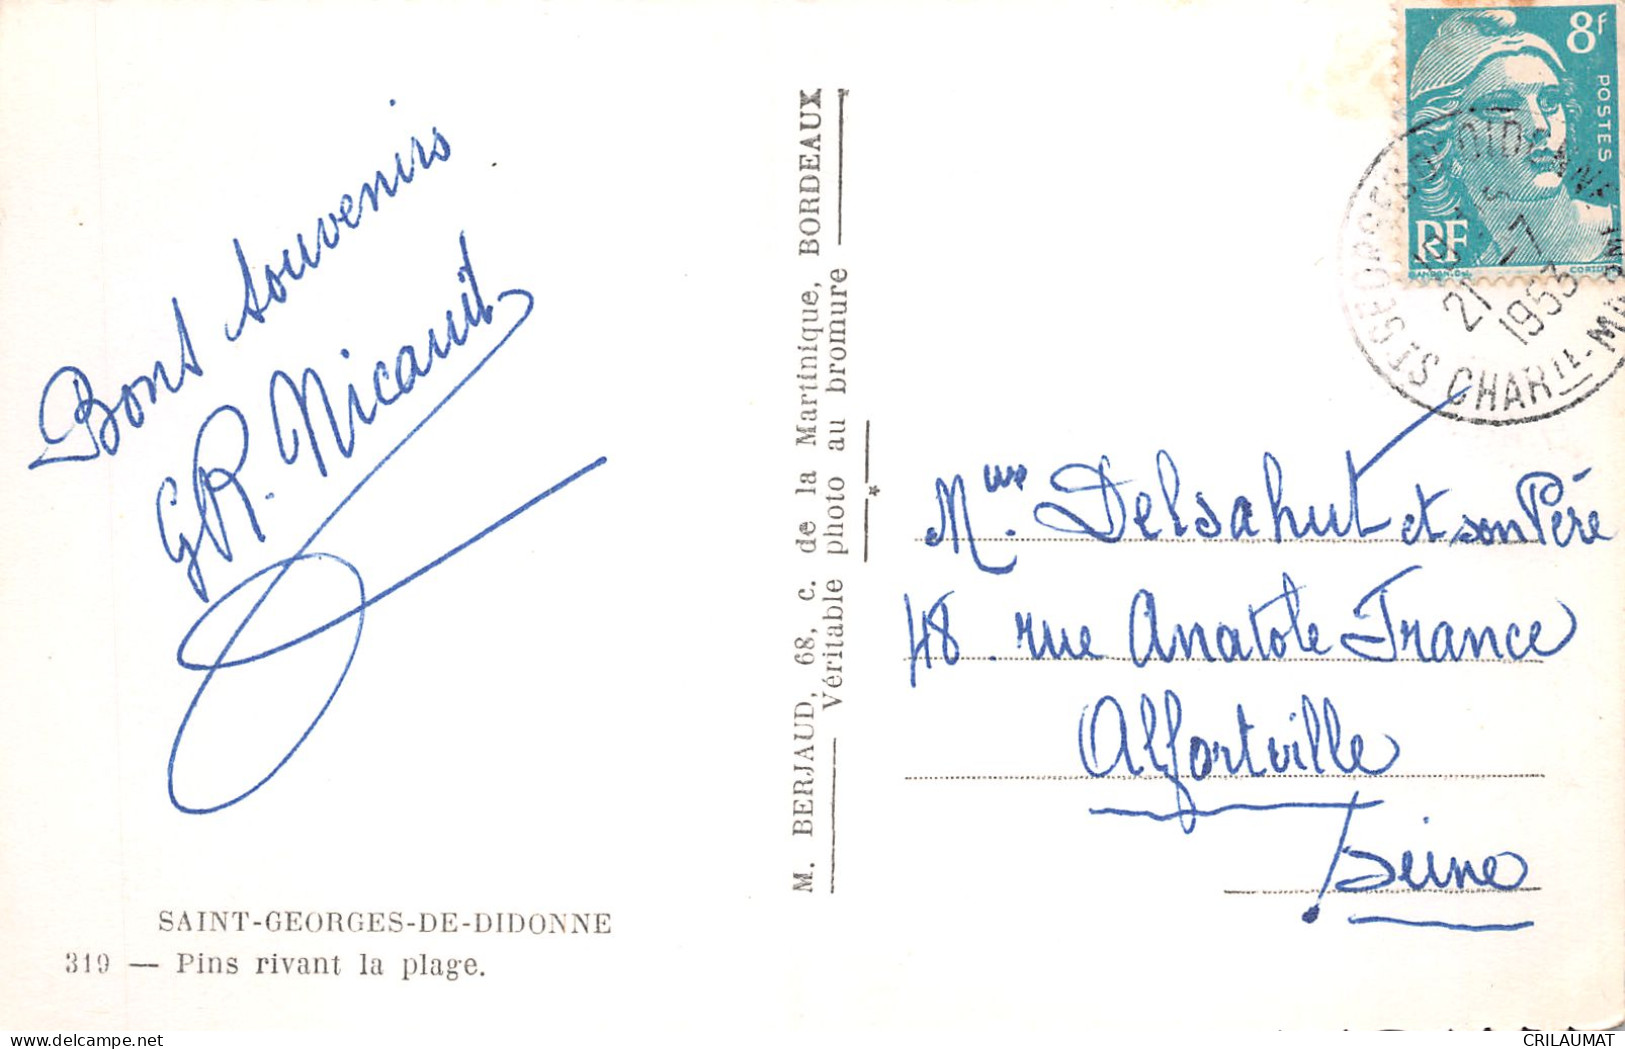 Bons souvenirs
GR. Nicault
SAINT-GEORGES-DE-DIDONNE
319 — Pins rivant la plage.
M. BERJAUD, 68, c. de la Martinique, BORDEAUX
Véritable photo au bromure
8f
POSTES
RF
GANDON
ST GEORGES DE DIDONNE
21 -7
1953
CHARTE-MARME
Mme. Delsahut et son Père
48. rue Anatole France
Alfortville
Seine
CRILAUMAT